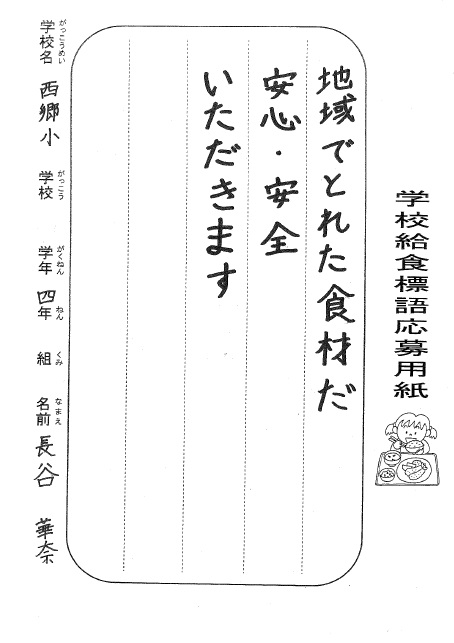 学校給食標語応募用紙
地域でとれた食材だ
安心・安全
いただきます
学校名 西郷小 学校 学年 四年 組 名前 長谷 華奈
がっこうめい がっこう がくねん ねん くみ なまえ